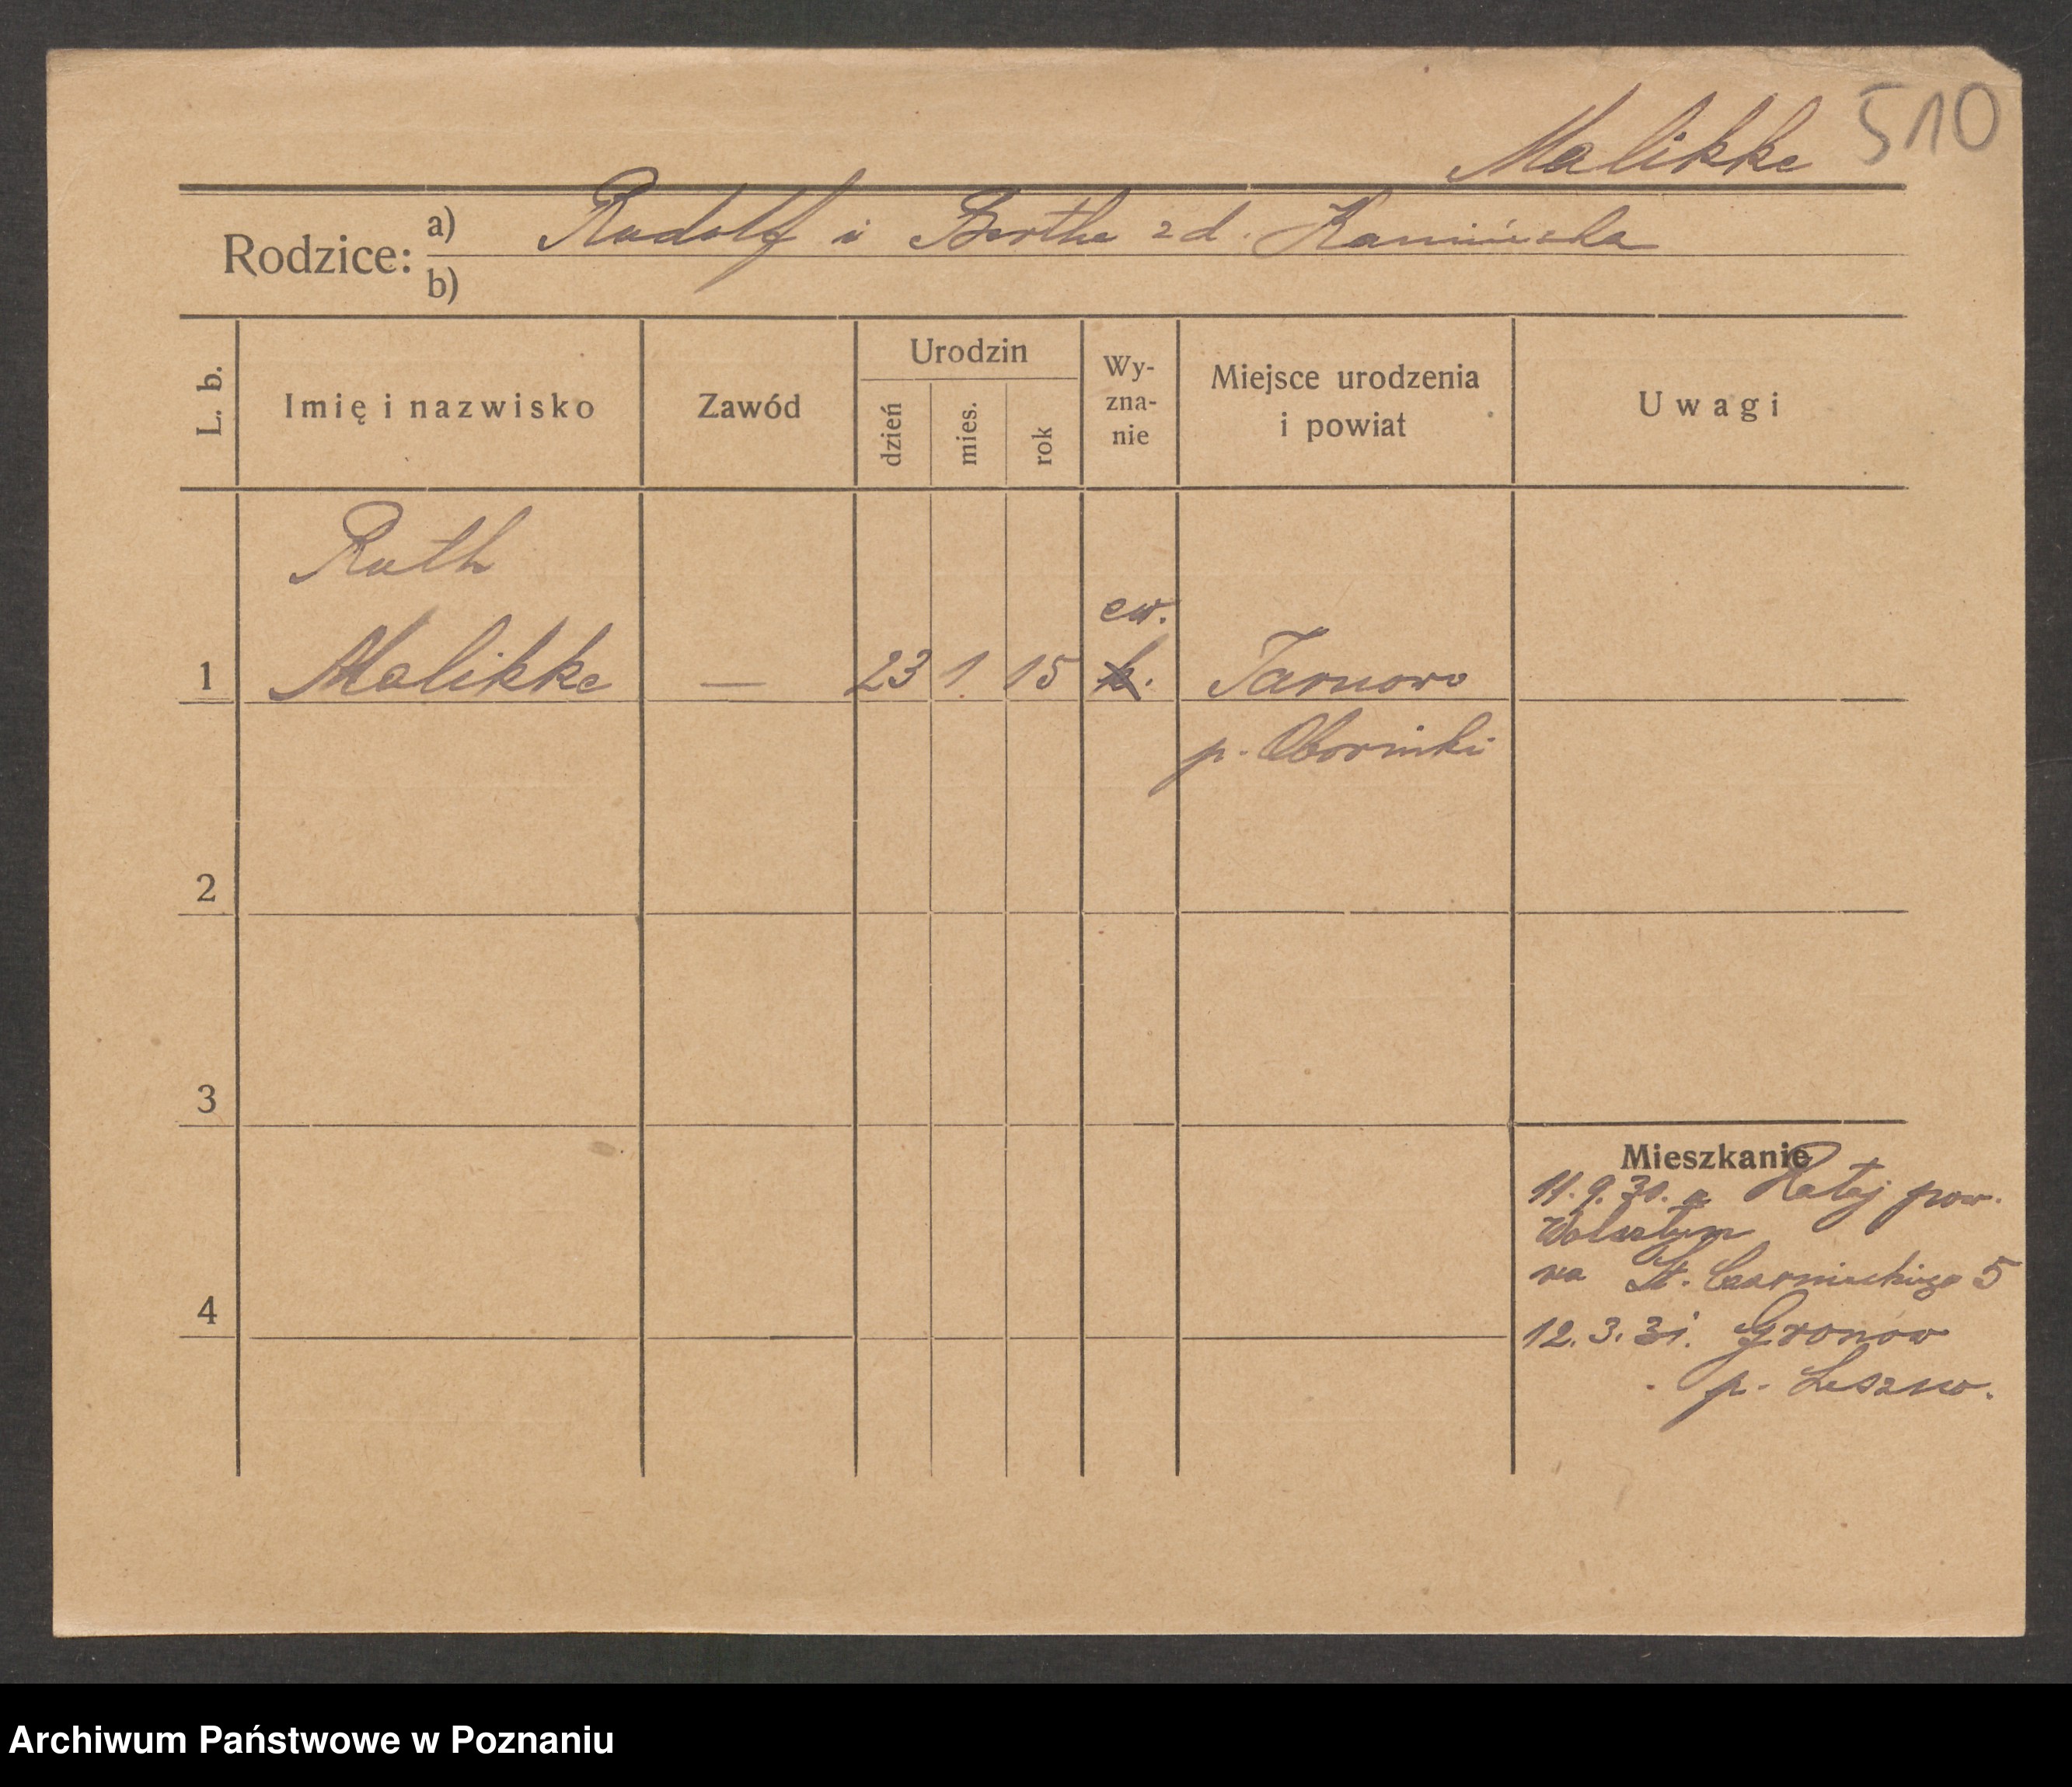 510
Malikke
Rodzice:
a) Rudolf i Berthe z d. Kamińska
b)
L. b.
Imię i nazwisko
Zawód
Urodzin
dzień
mies.
rok
Wy-
zna-
nie
Miejsce urodzenia
i powiat
Uwagi
Ruth
ew.
1 Malikke — 23 1 15 k. Tarnowo
p. Oborniki
2
3
4
Mieszkanie
11.9.30. z Rataj pow.
Wolsztyn
na St. Czarnieckiego 5
12.3.31. Gronow
p. Leszno.
Archiwum Państwowe w Poznaniu